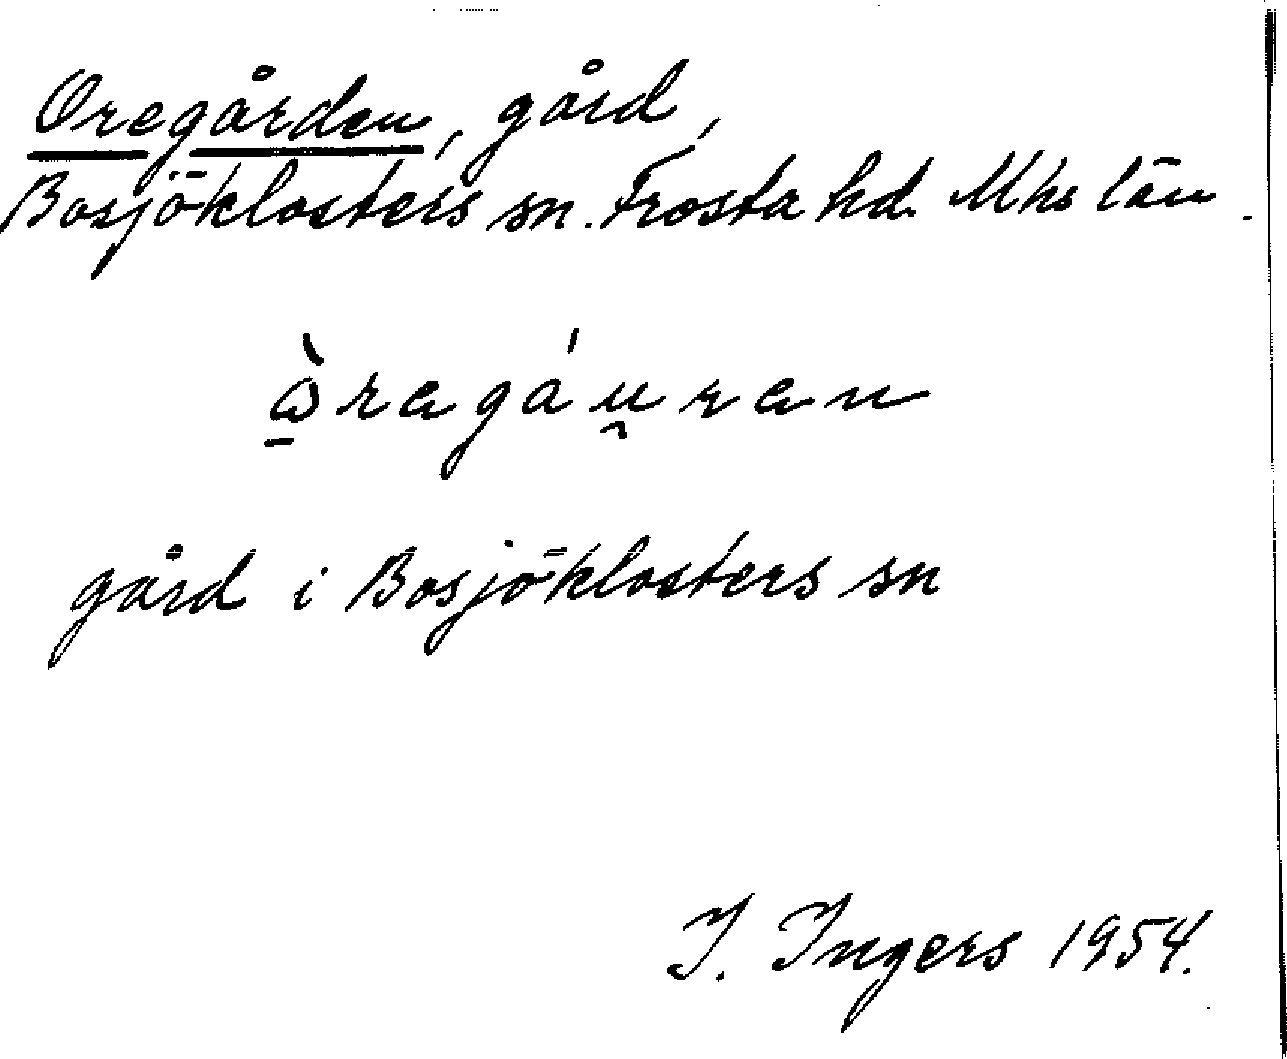 Oregården, gård,
Bosjöklosters sn. Frosta hd. Mhs län.
å̱̀ragáu̯ran
gård i Bosjöklosters sn
I. Ingers 1954.